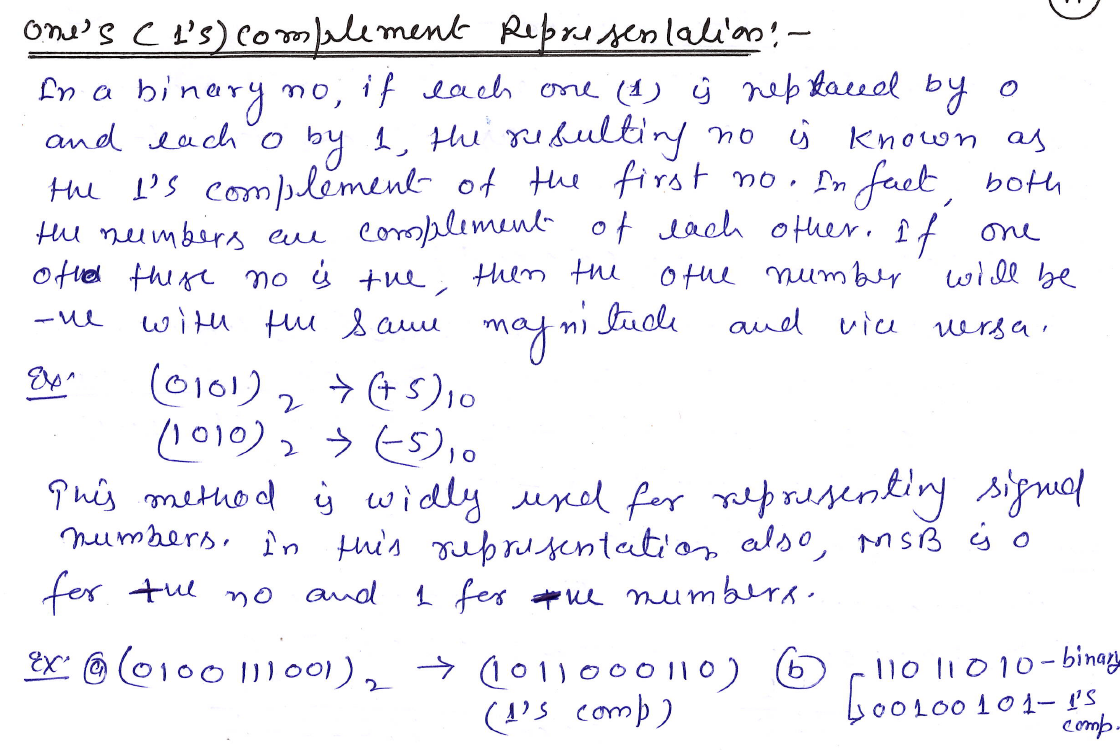 one's (1's) complement Representation:-
In a binary no, if each one (1) is replaced by 0
and each 0 by 1, the resulting no is known as
the 1's complement of the first no. In fact, both
the numbers are complement of each other. If one
of these no is +ve, then the other number will be
-ve with the same magnitude and vice versa.
Ex: (0101)₂ → (+5)₁₀
(1010)₂ → (-5)₁₀
This method is widly used for representing signed
numbers. In this representation also, MSB is 0
for +ve no and 1 for -ve numbers.
Ex: (a) (0100111001)₂ → (1011000110) (b) 11011010 - binary
(1's comp) 00100101 - 1's
comp.